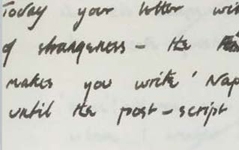 Today your letter wi
of strangeness – the
makes you write 'Nap
until the post-script